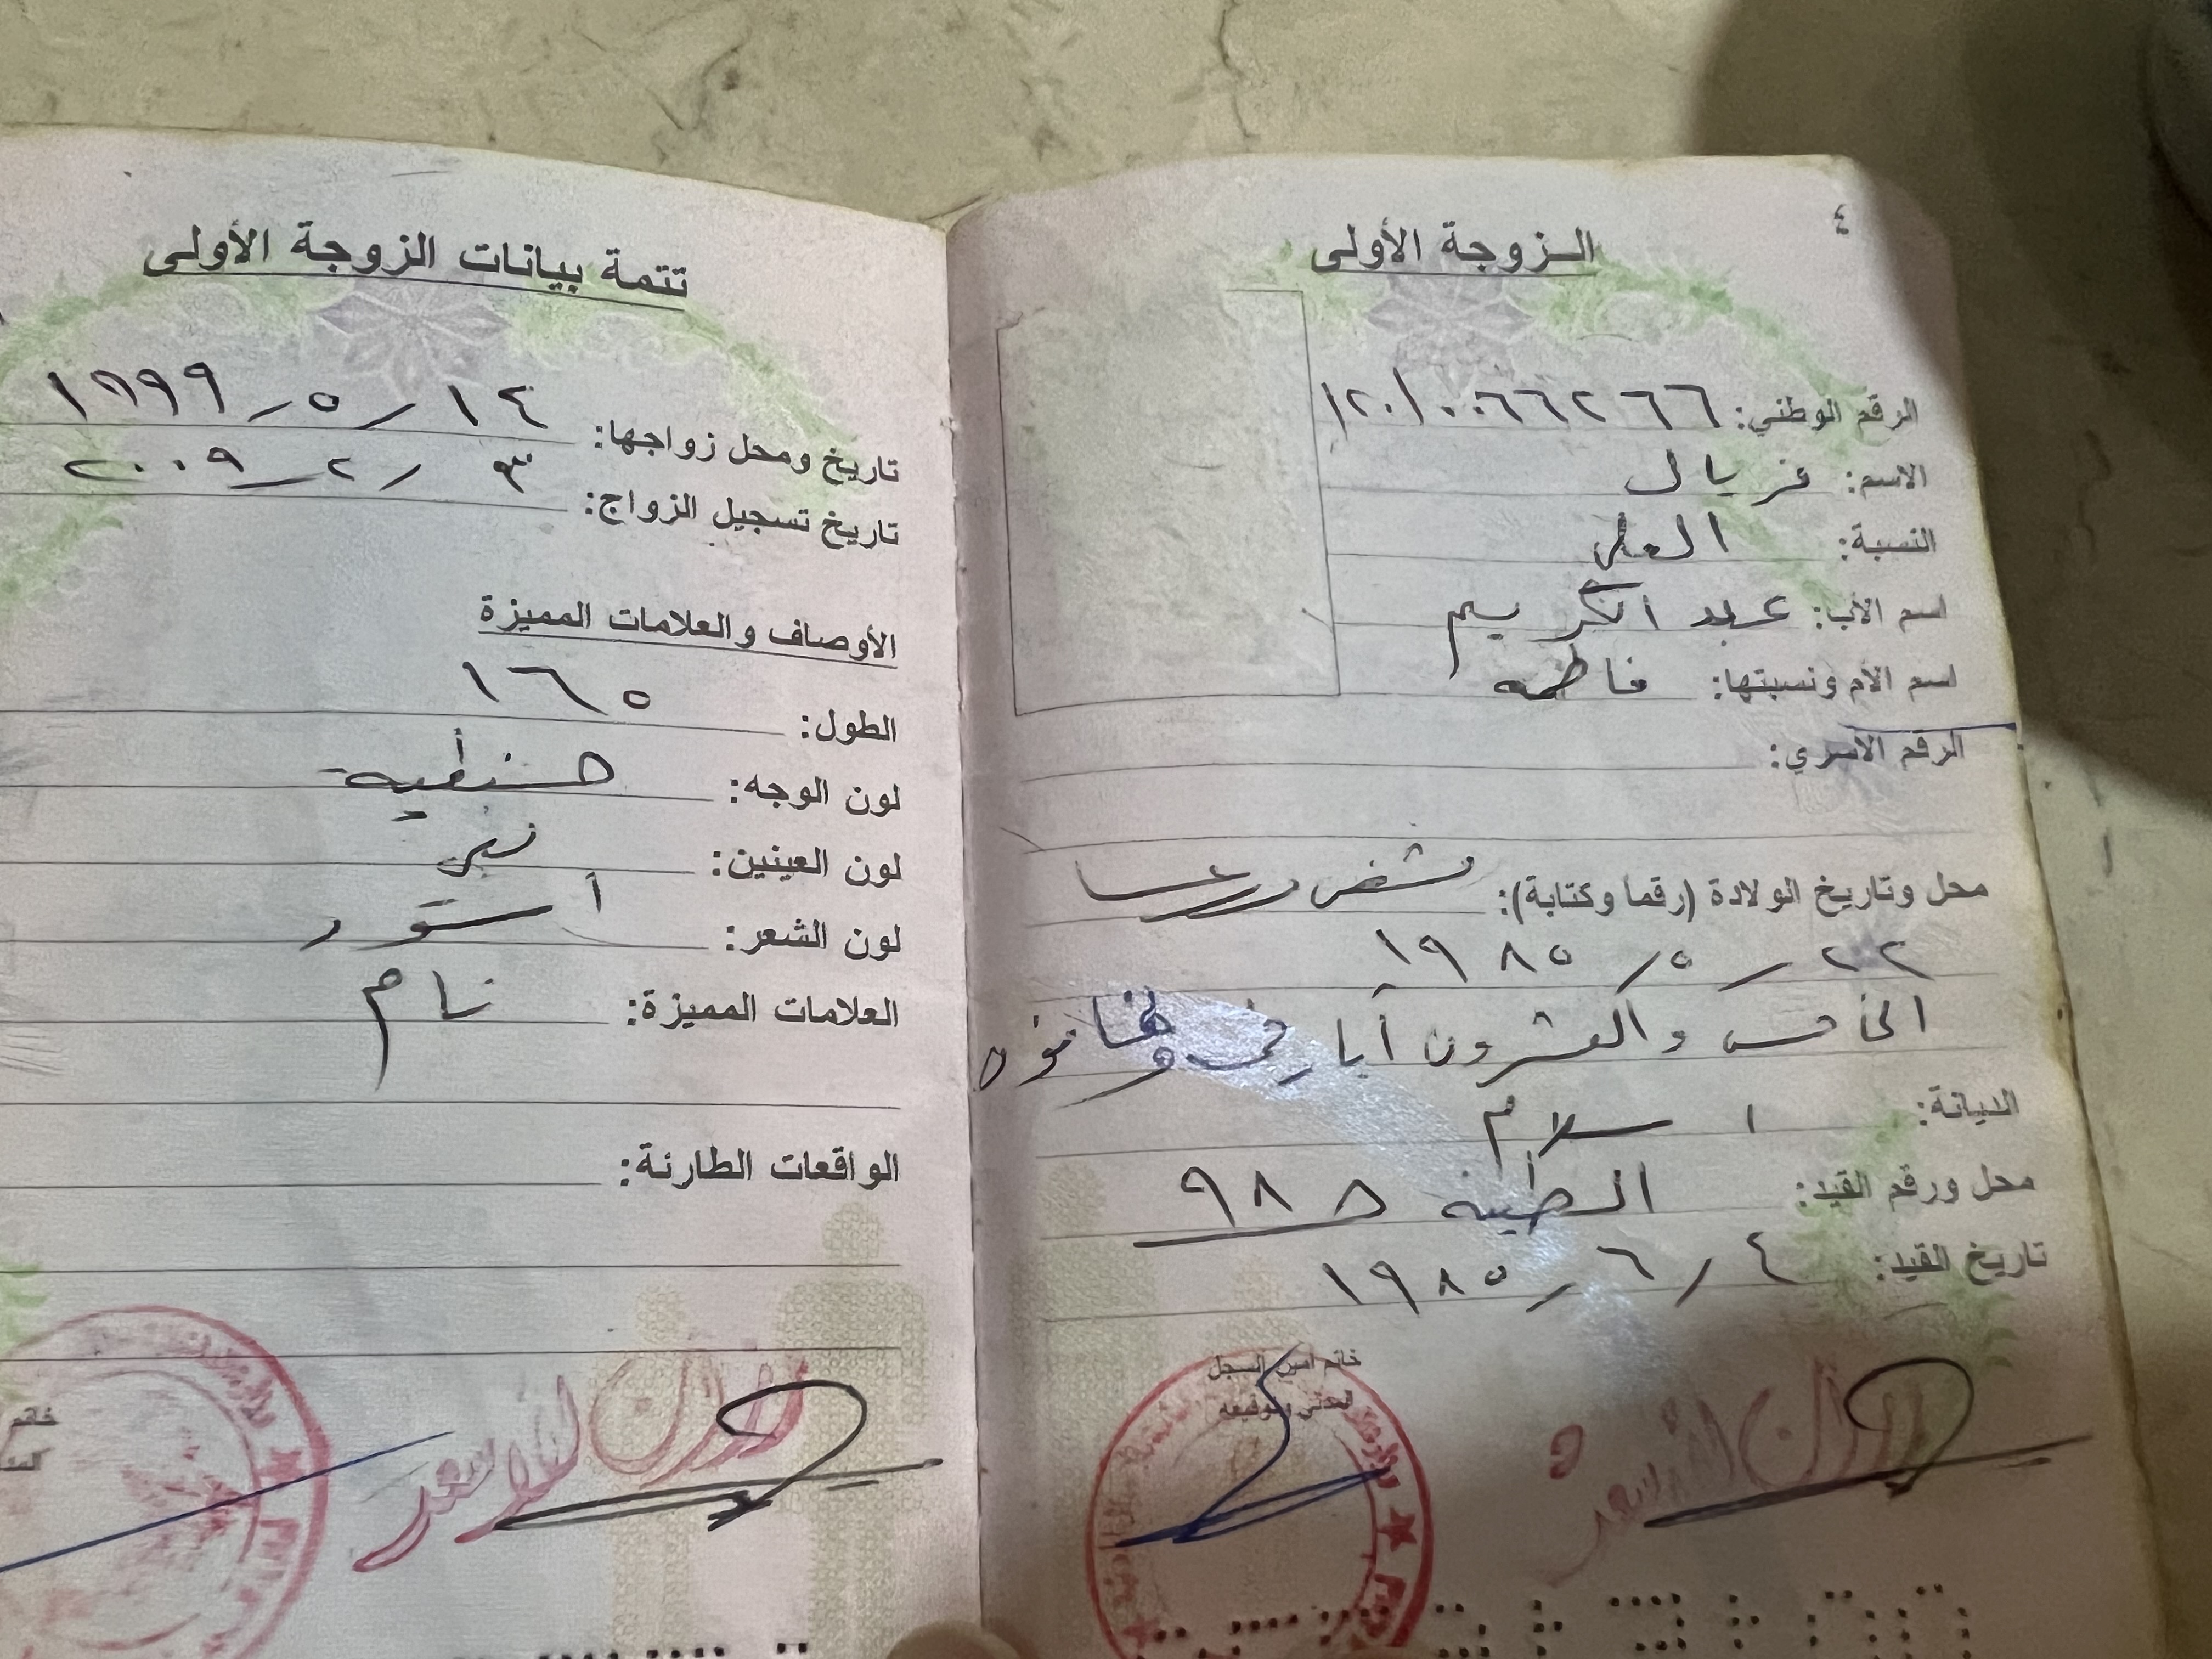 ٤
الزوجة الأولى
الرقم الوطني: ١٢٠١٠٠٦٦٢٦٦
الاسم: فريال
النسبة: العلي
اسم الأب: عبد الكريم
اسم الأم ونسبتها: فاطمه
الرقم الأسري:
محل وتاريخ الولادة (رقماً وكتابة): درعا
٢٢ / ٥ / ١٩٨٥
الخامس والعشرون آيار
الديانة: اسلام
محل ورقم القيد: ٩٨٨
تاريخ القيد: ٤ / ٦ / ١٩٨٥
خاتم أمين السجل
المدني وتوقيعه
تتمة بيانات الزوجة الأولى
تاريخ ومحل زواجها: ١٤ / ٥ / ١٩٩٩
تاريخ تسجيل الزواج: ٣ / ٢ / ٢٠٠٩
الأوصاف والعلامات المميزة
الطول: ١٦٥
لون الوجه: حنطية
لون العينين: بني
لون الشعر: أسود
العلامات المميزة:
الواقعات الطارئة:
خاتم